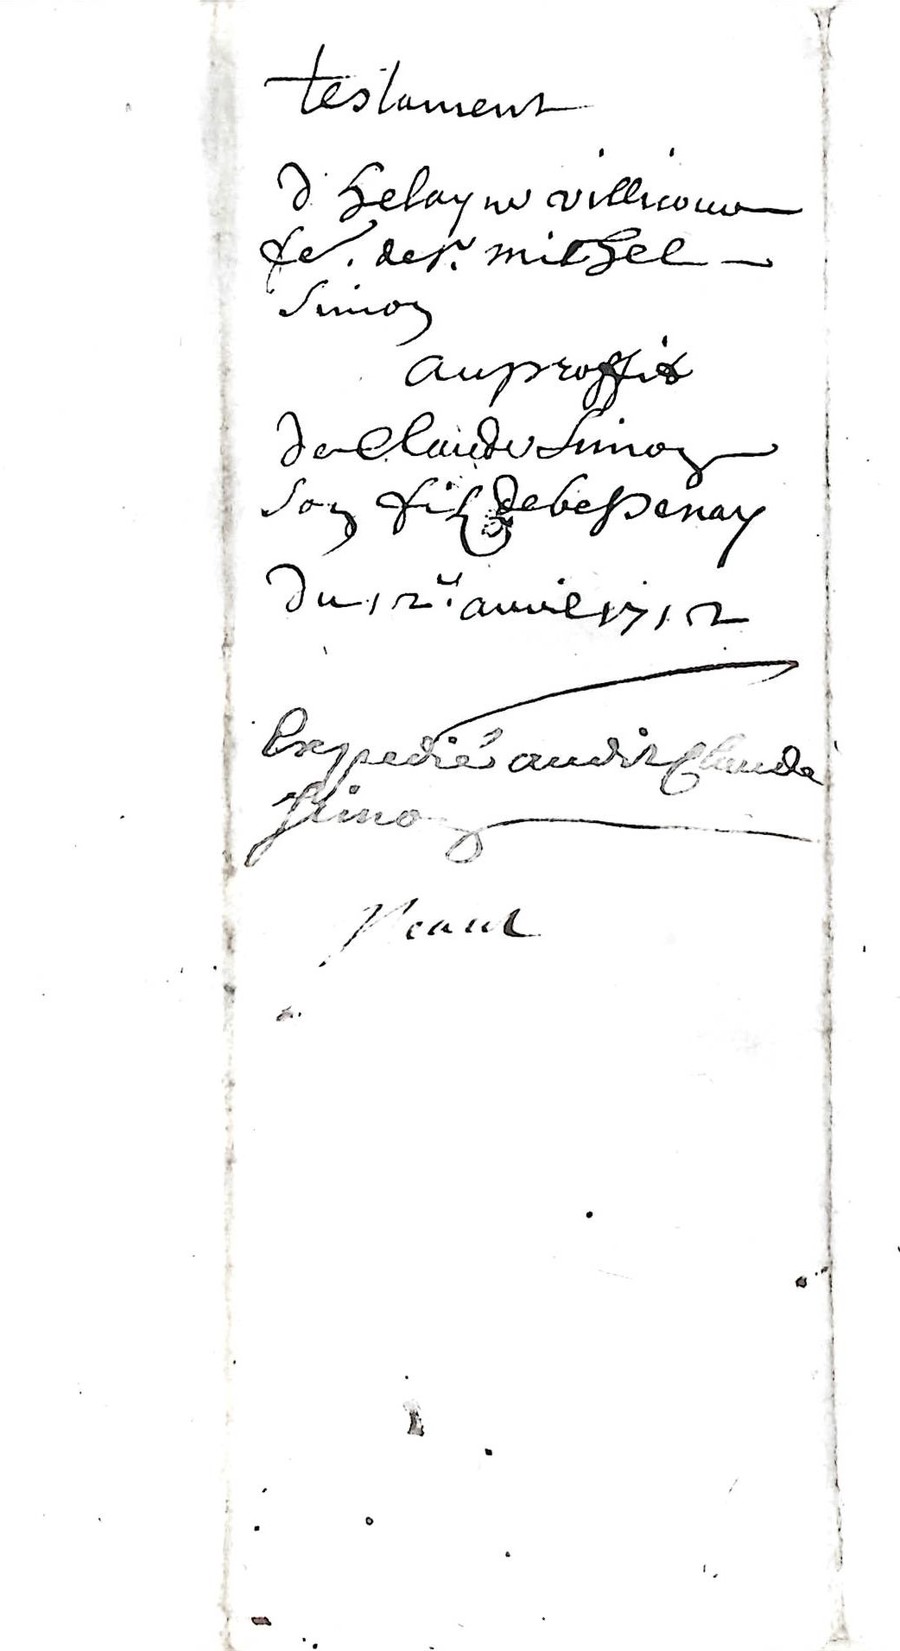 testament
d helayne villicome
fe. de sr. michel
Simon
au proffit
de Claude Simon
son filz de bessenay
du 12e. avril 1712
Expedié audit Claude
Simon